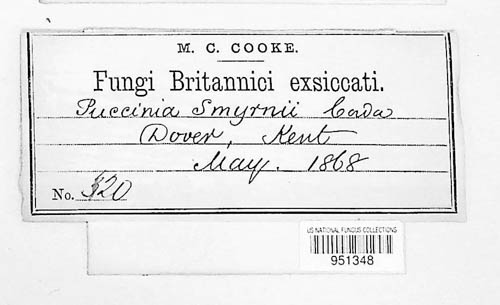 M. C. COOKE.
Fungi Britannici exsiccati.
Puccinia Smyrnii Corda
Dover, Kent
May. 1868
No. 320
US NATIONAL FUNGUS COLLECTIONS
951348